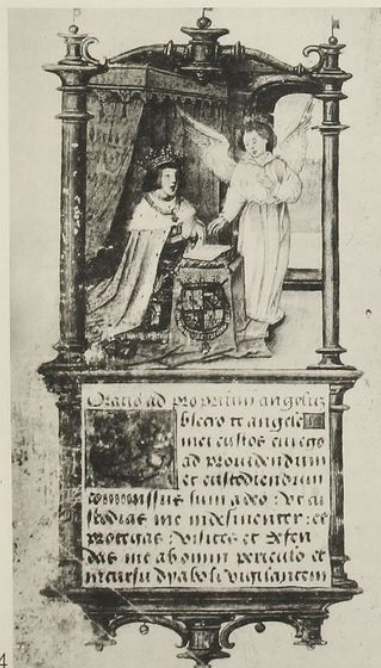 Oratio ad proprium angelū
bsecro te angele
mei custos cui ego
ad providendum
et custodiendum
commissus sum a deo : vt cu
stodias me indesinenter : et
protegas : visites et defen
das me ab omni periculo et
incursu dyaboli vigilantem
4